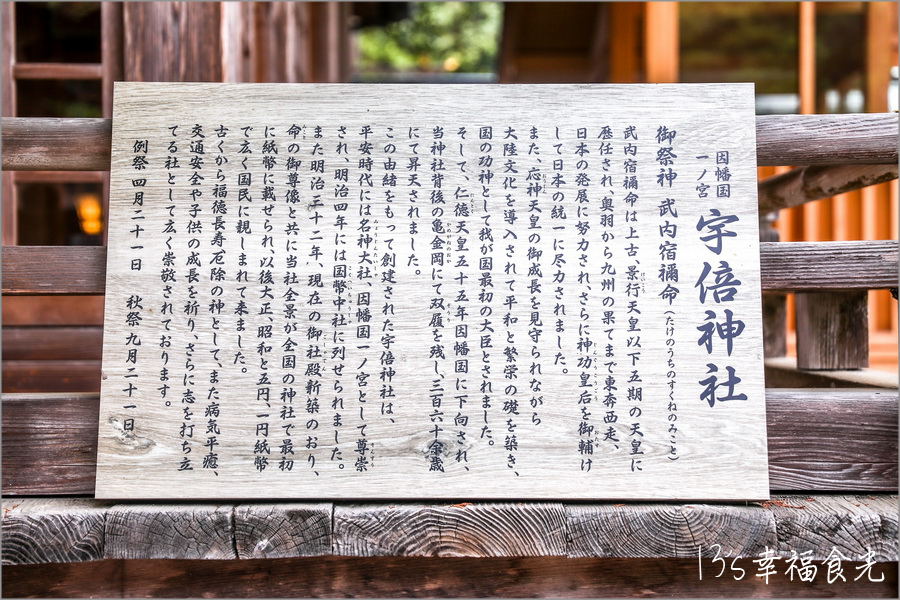 因幡国
一ノ宮
宇倍神社
御祭神 武内宿禰命(たけのうちのすくねのみこと)
武内宿禰命は上古、景行天皇以下五期の天皇に
歴任され、奥羽から九州の果てまで東奔西走、
日本の発展に努力され、さらに神功皇后を御輔け
して日本の統一に尽力されました。
また、応神天皇の御成長を見守られながら
大陸文化を導入されて平和と繁栄の礎を築き、
国の功神として我が国最初の大臣とされました。
そして、仁徳天皇五十五年因幡国に下向され、
当神社背後の亀金岡にて双履を残し、三百六十余歳
にて昇天されました。
この由緒をもって創建された宇倍神社は、
平安時代には名神大社、因幡国一ノ宮として尊崇
され、明治四年には国幣中社に列せられました。
また明治三十二年、現在の御社殿新築のおり、
命の御尊像と共に当社全景が全国の神社で最初
に紙幣に載せられ、以後大正、昭和と五円、一円紙幣
で広く国民に親しまれて来ました。
古くから福徳長寿厄除の神として、また病気平癒、
交通安全や子供の成長を祈り、さらに志を打ち立
てる社として広く崇敬されております。
例祭 四月二十一日 秋祭 九月二十一日
13's幸福食光